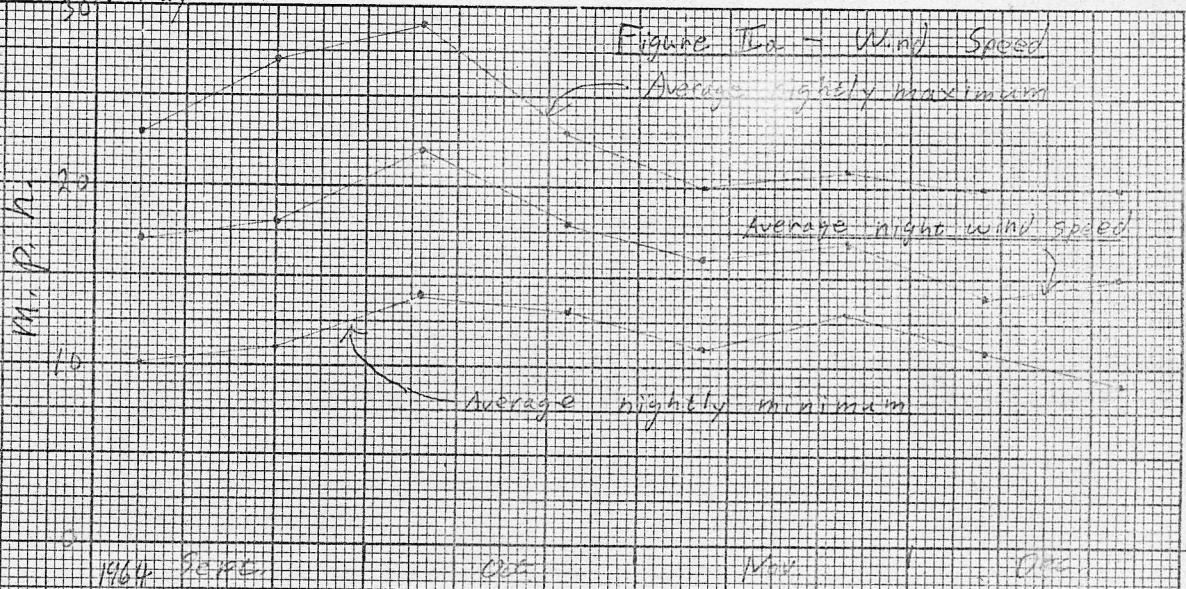 30
Figure IIa - Wind Speed
Average nightly maximum
20
m.p.h.
Average night wind speed
10
Average nightly minimum
0
1964 Sept. Oct Nov Dec.